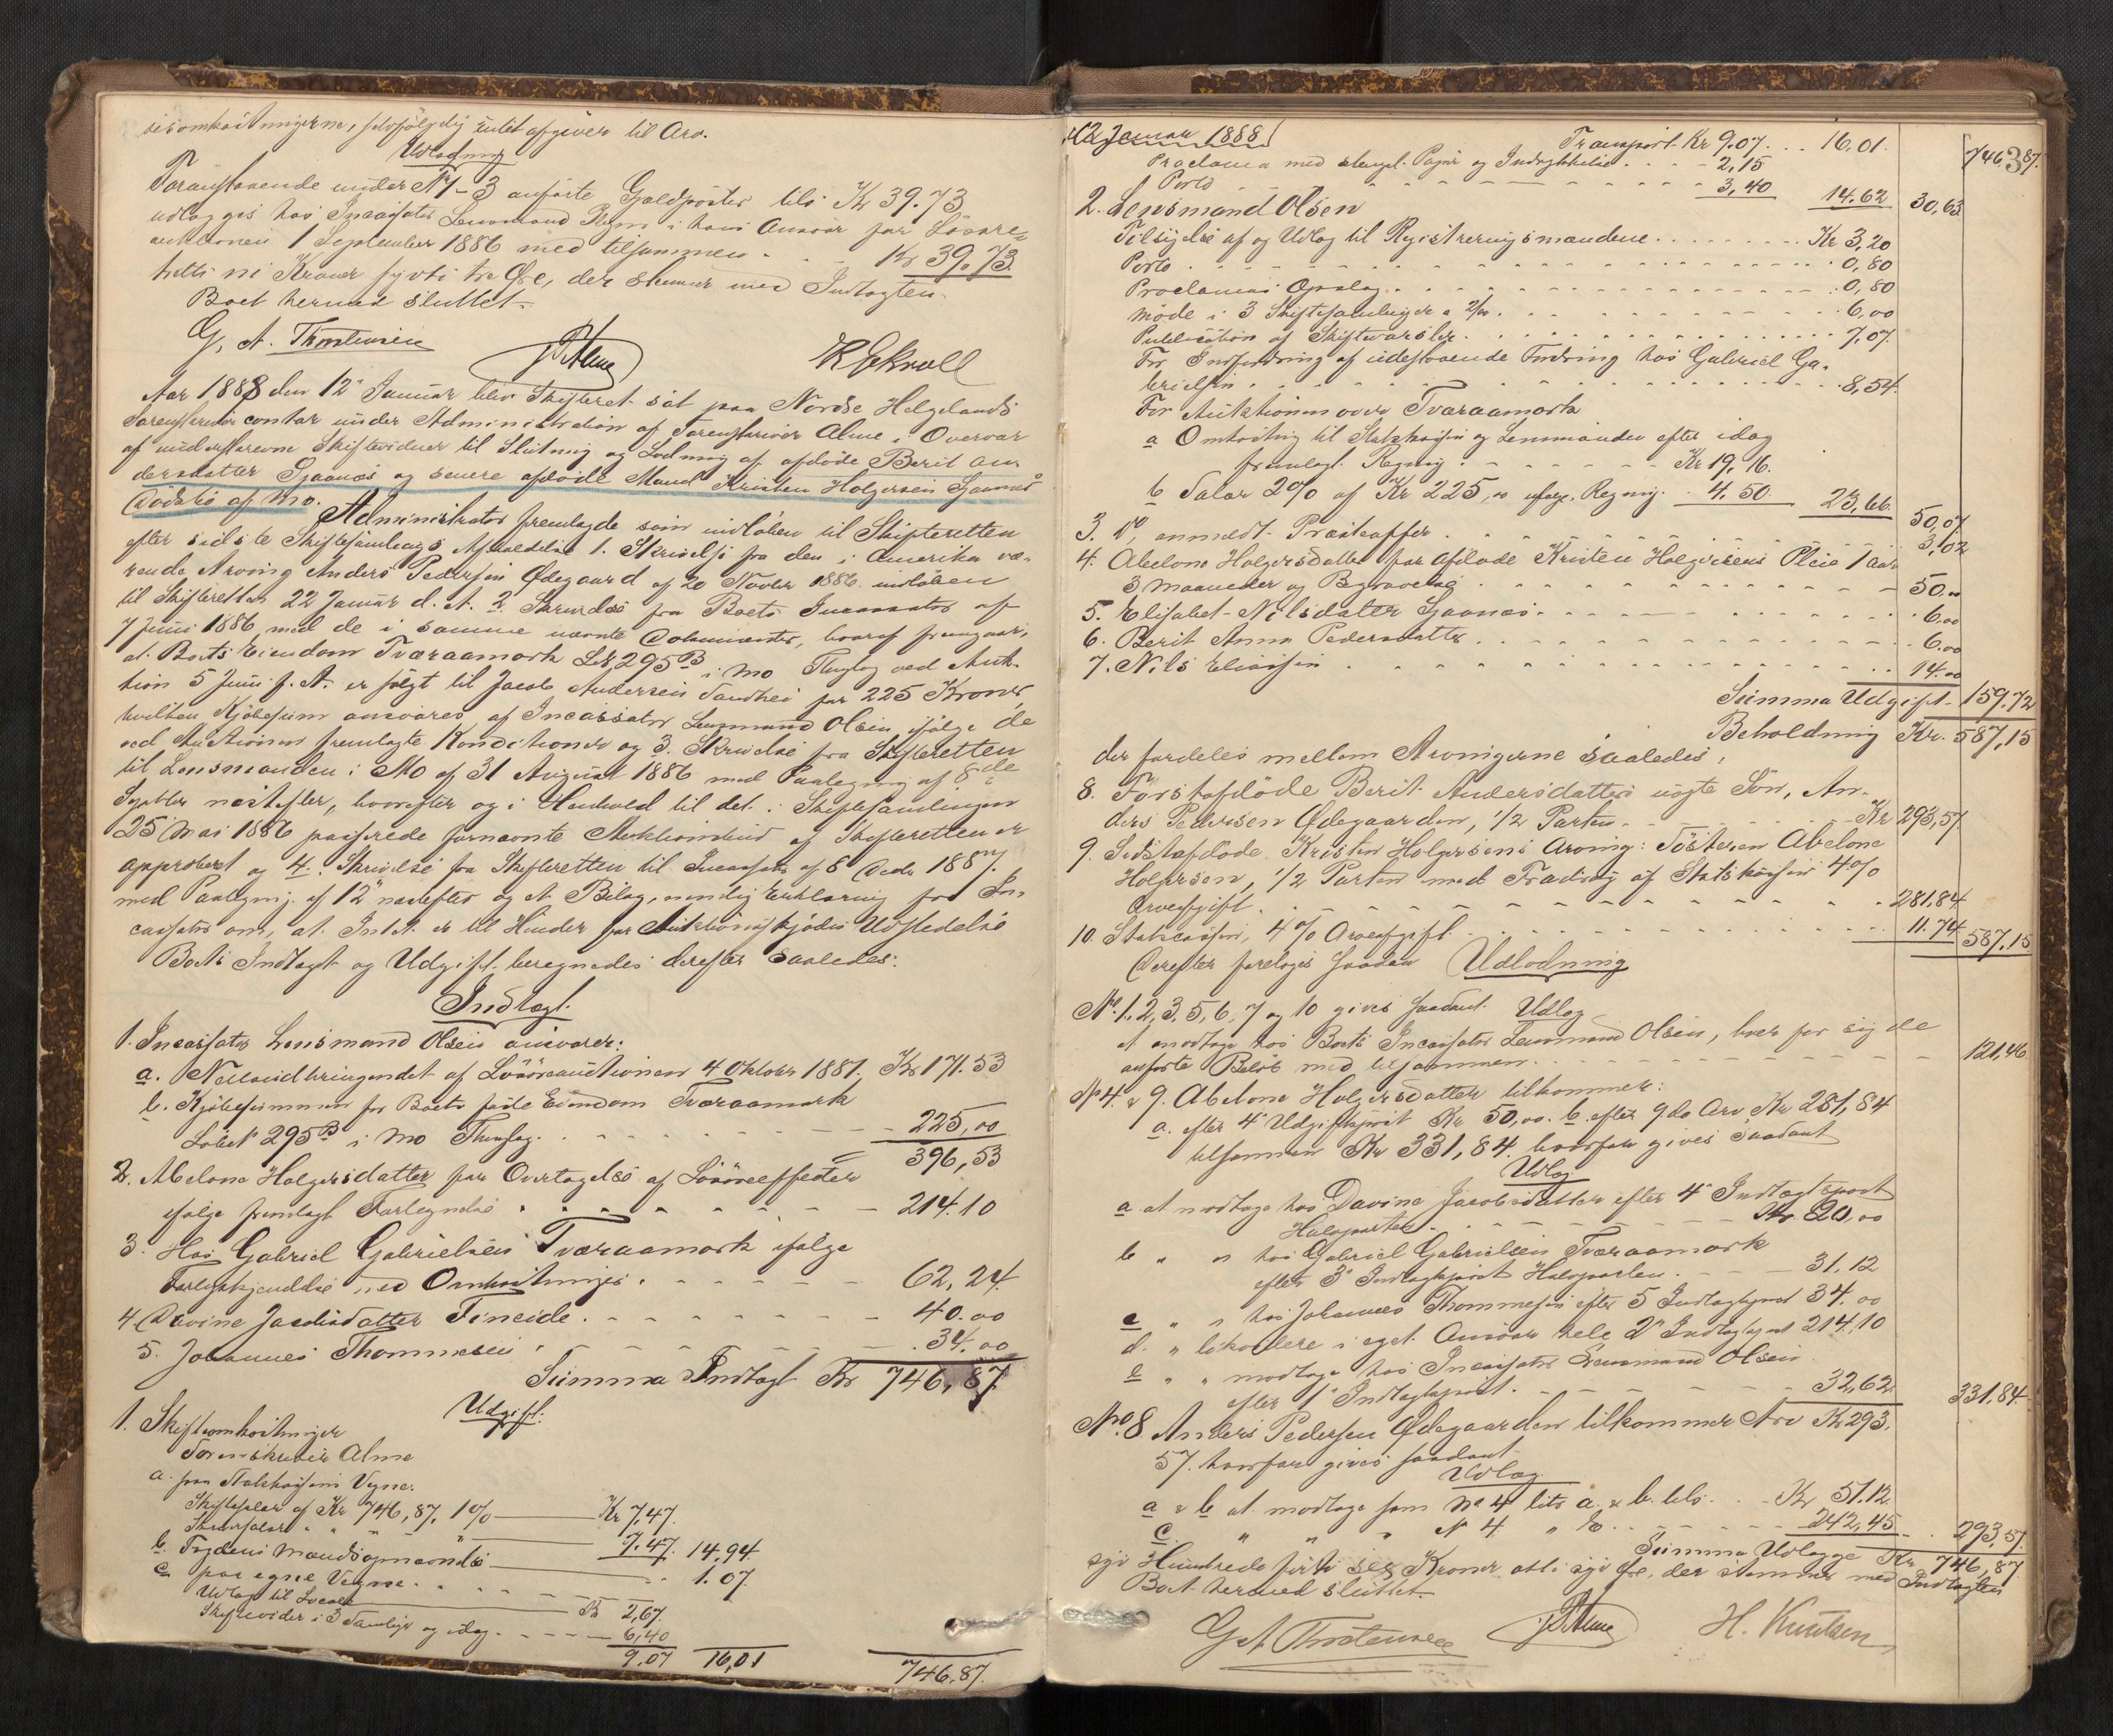 Udlodning
Foranstaaende under No 1-3 anförte Gjældsposter tils. Kr 39.73
udlægges hos Incassator Lensmand i hans Ansvar for Lösöre-
auktionen 1 September 1886 med tilsammen - - - Kr 39.73
tretti ni Kroner sytti tre Øre, der stemmer med Indtægten.
Boet hermed sluttet.
G. A. Thorstensen
Aar 1888 den 12 Januar blev Skifteret sat paa Nordre Helgelands
Sorenskrivercontor under Administration af Sorenskriver Alme i Overvær
af underskrevne Skiftevidner til Slutning og Lodning af afdöde Berit An-
dersdatter Gjaanæs og senere afdöde Mand Kristen Holgersen Gjaanæs
Dödsbo af Mo. Administrator fremlagde som indkommen til Skifteretten
efter sidste Skiftesamlings Afholdelse 1. Skrivelse fra den i Amerika væ-
rende Arving Anders Pedersen Ødegaard af 20 Novbr 1886 indkommen
til Skifteretten 22 Januar d. A. 2. Skrivelse fra Boets Incassator af
7 Juni 1886 med de i samme nævnte Documenter, hvoraf fremgaar,
at Boets Eiendom Tværaamark LN 295 B i Mo Thinglag ved Auk-
tion 5 Juni f. A. er solgt til Jacob Andersen Sandhei for 225 Kroner,
hvilken Kjöbesum ansvares af Incassator Lensmand Olsen ifölge de
ved Auctionen fremlagte Konditioner og 3. Skrivelse fra Skifteretten
til Lensmanden i Mo af 31 August 1886 med Paategning af 8de
Septbr næstefter, hvorefter og i Henhold til det i Skiftesamlingen
25 Mai 1886 passerede fornævnte Auktionsbud af Skifteretten er
approberet og 4. Skrivelse fra Skifteretten til Incassator af 8 Decbr 1887
med Paategning af 12 næstefter og et Bilag, nemlig Erklæring fra In-
cassator om, at Intet er til Hinder for Auktionsskjödes Udstedelse
Boets Indtægt og Udgift beregnedes derefter saaledes:
Indtægt
1. Incassator Lensmand Olsen ansvarer:
a. Nettoudbringendet af Lösöreauctionen 4 Oktober 1881. Kr 171.53
b. Kjöbesummen for Boets faste Eiendom Tværaamark
Löbe N 295 B i Mo Thinglag. - - - 225,00
396,53
2. Abelone Holgersdatter for Overtagelse af Lösöreeffecter
ifölge fremlagt Fortegnelse - - - 214.10
3. Hos Gabriel Gabrielsen Tværaamark ifölge
med Omkostninger. - - - 62,24.
4. Davine Jacobsdatter Fineide. - - - 40.00
5. Johannes Thommesen - - - 34,00
Summa Indtægt Kr 746,87
Udgift:
1. Skifteomkostninger
Sorenskriver Alme
a. paa Statskassens Vegne:
Skiftesalær af Kr 746,87, 1% Kr 7,47.
7.47. 14.94
b. 1.07.
c. paa egne Vegne. - - -
Udlæg til Kr 2,67.
Skiftevidner i 3 Samlinger og idag. - - - 6,40
9.07 16,01 746.87.
12 Januar 1888
Transport Kr 9.07. . . 16.01. 746.87.
Proclama med stempl. Papir og - - - 2,15
Porto - - - 3,40 14.62 30,63
2. Lensmand Olsen
Tilsigelse af og Udlæg til Registreringsmændene - - - Kr 3,20
Porto - - - 0,80
Proclamas Opslag - - - 0,80
Möde i 3 Skiftesamlinger a 2/00. - - - 6,00
Publication af Skiftevarsler - - - 7,07.
For Indfordring af udestaaende Fordring hos Gabriel Ga-
brielsen - - - 8,54.
For Auktionen over Tværaamark
a Omkostning til Statskassen og Lensmanden efter idag
fremlagt Regning - - - Kr 19,16.
b Salær 2% af Kr 225,00 ifölge Regning. 4,50. 23,66. 50,07
3. Do, anmeldt Præsteoffer - - - 3,02
4. Abelone Holgersdatter for afdöde Kristen Holgersens Pleie 1 aar
3 Maaneder og Begravelse - - - 50.00
5. Elisabet Nilsdatter Gjaanæs - - - 6.00
6. Berit Anna Pedersdatter - - - 6.00
7. Nils Eliassen - - - 14.00
Summa Udgift 159.72
Beholdning Kr. 587,15
der fordeles mellem Arvingerne saaledes:
8. Förstafdöde Berit Andersdatters uægte Sön, An-
ders Pedersen Ødegaarden, 1/2 Parten - - - Kr 293,57.
9. Sidstafdöde Kristen Holgersens Arving: Sösteren Abelone
Holgersen, 1/2 Parten med Fradrag af Statskassens 4%
Arveafgift - - - 281.84
10. Statscassen, 4% Arveafgift - - - 11.74 587,15
Derefter foretoges saadan Udlodning
No 1, 2, 3, 5, 6, 7 og 10 gives saadant Udlæg
at modtage hos Boets Incassator Lensmand Olsen, hver for sig de
anförte Belöb med tilsammen - - - 121,46.
No 4 & 9. Abelone Holgersdatter tilkommer:
a. efter 4 Udgiftspost Kr 50,00. b. efter 9do Arv Kr 281,84
tilsammen Kr 331,84. hvorfor gives saadant
Udlæg
a at modtage hos Davine Jacobsdatter efter 4 Indtægtspost
Halvparten - - - Kr. 20,00
b " " hos Gabriel Gabrielsen Tværaamark
efter 3 Indtægtspost Halvparten - - - 31.12
c " " hos Johannes Thommesen efter 5 Indtægtspost 34.00
d. " likvidere i eget Ansvar hele 2 Indtægtspost 214,10
e " " modtage hos Incassator Lensmand Olsen
efter 1 Indtægtspost - - - 32,62 331,84.
No 8. Anders Pedersen Ødegaarden tilkommer Arv Kr 293,
57. hvorfor gives saadant
Udlæg
a & b at modtage som No 4 litr a. & b. tils. - - Kr 51.12
c. " " " N 4 " e. - - - 242,45 293,57
Summa Udlægge Kr 746,87
syv Hundrede förti sex Kroner otti syv Øre, der stemmer med Indtægten
Boet hermed sluttet.
G A Thorstensen H. Knutsen